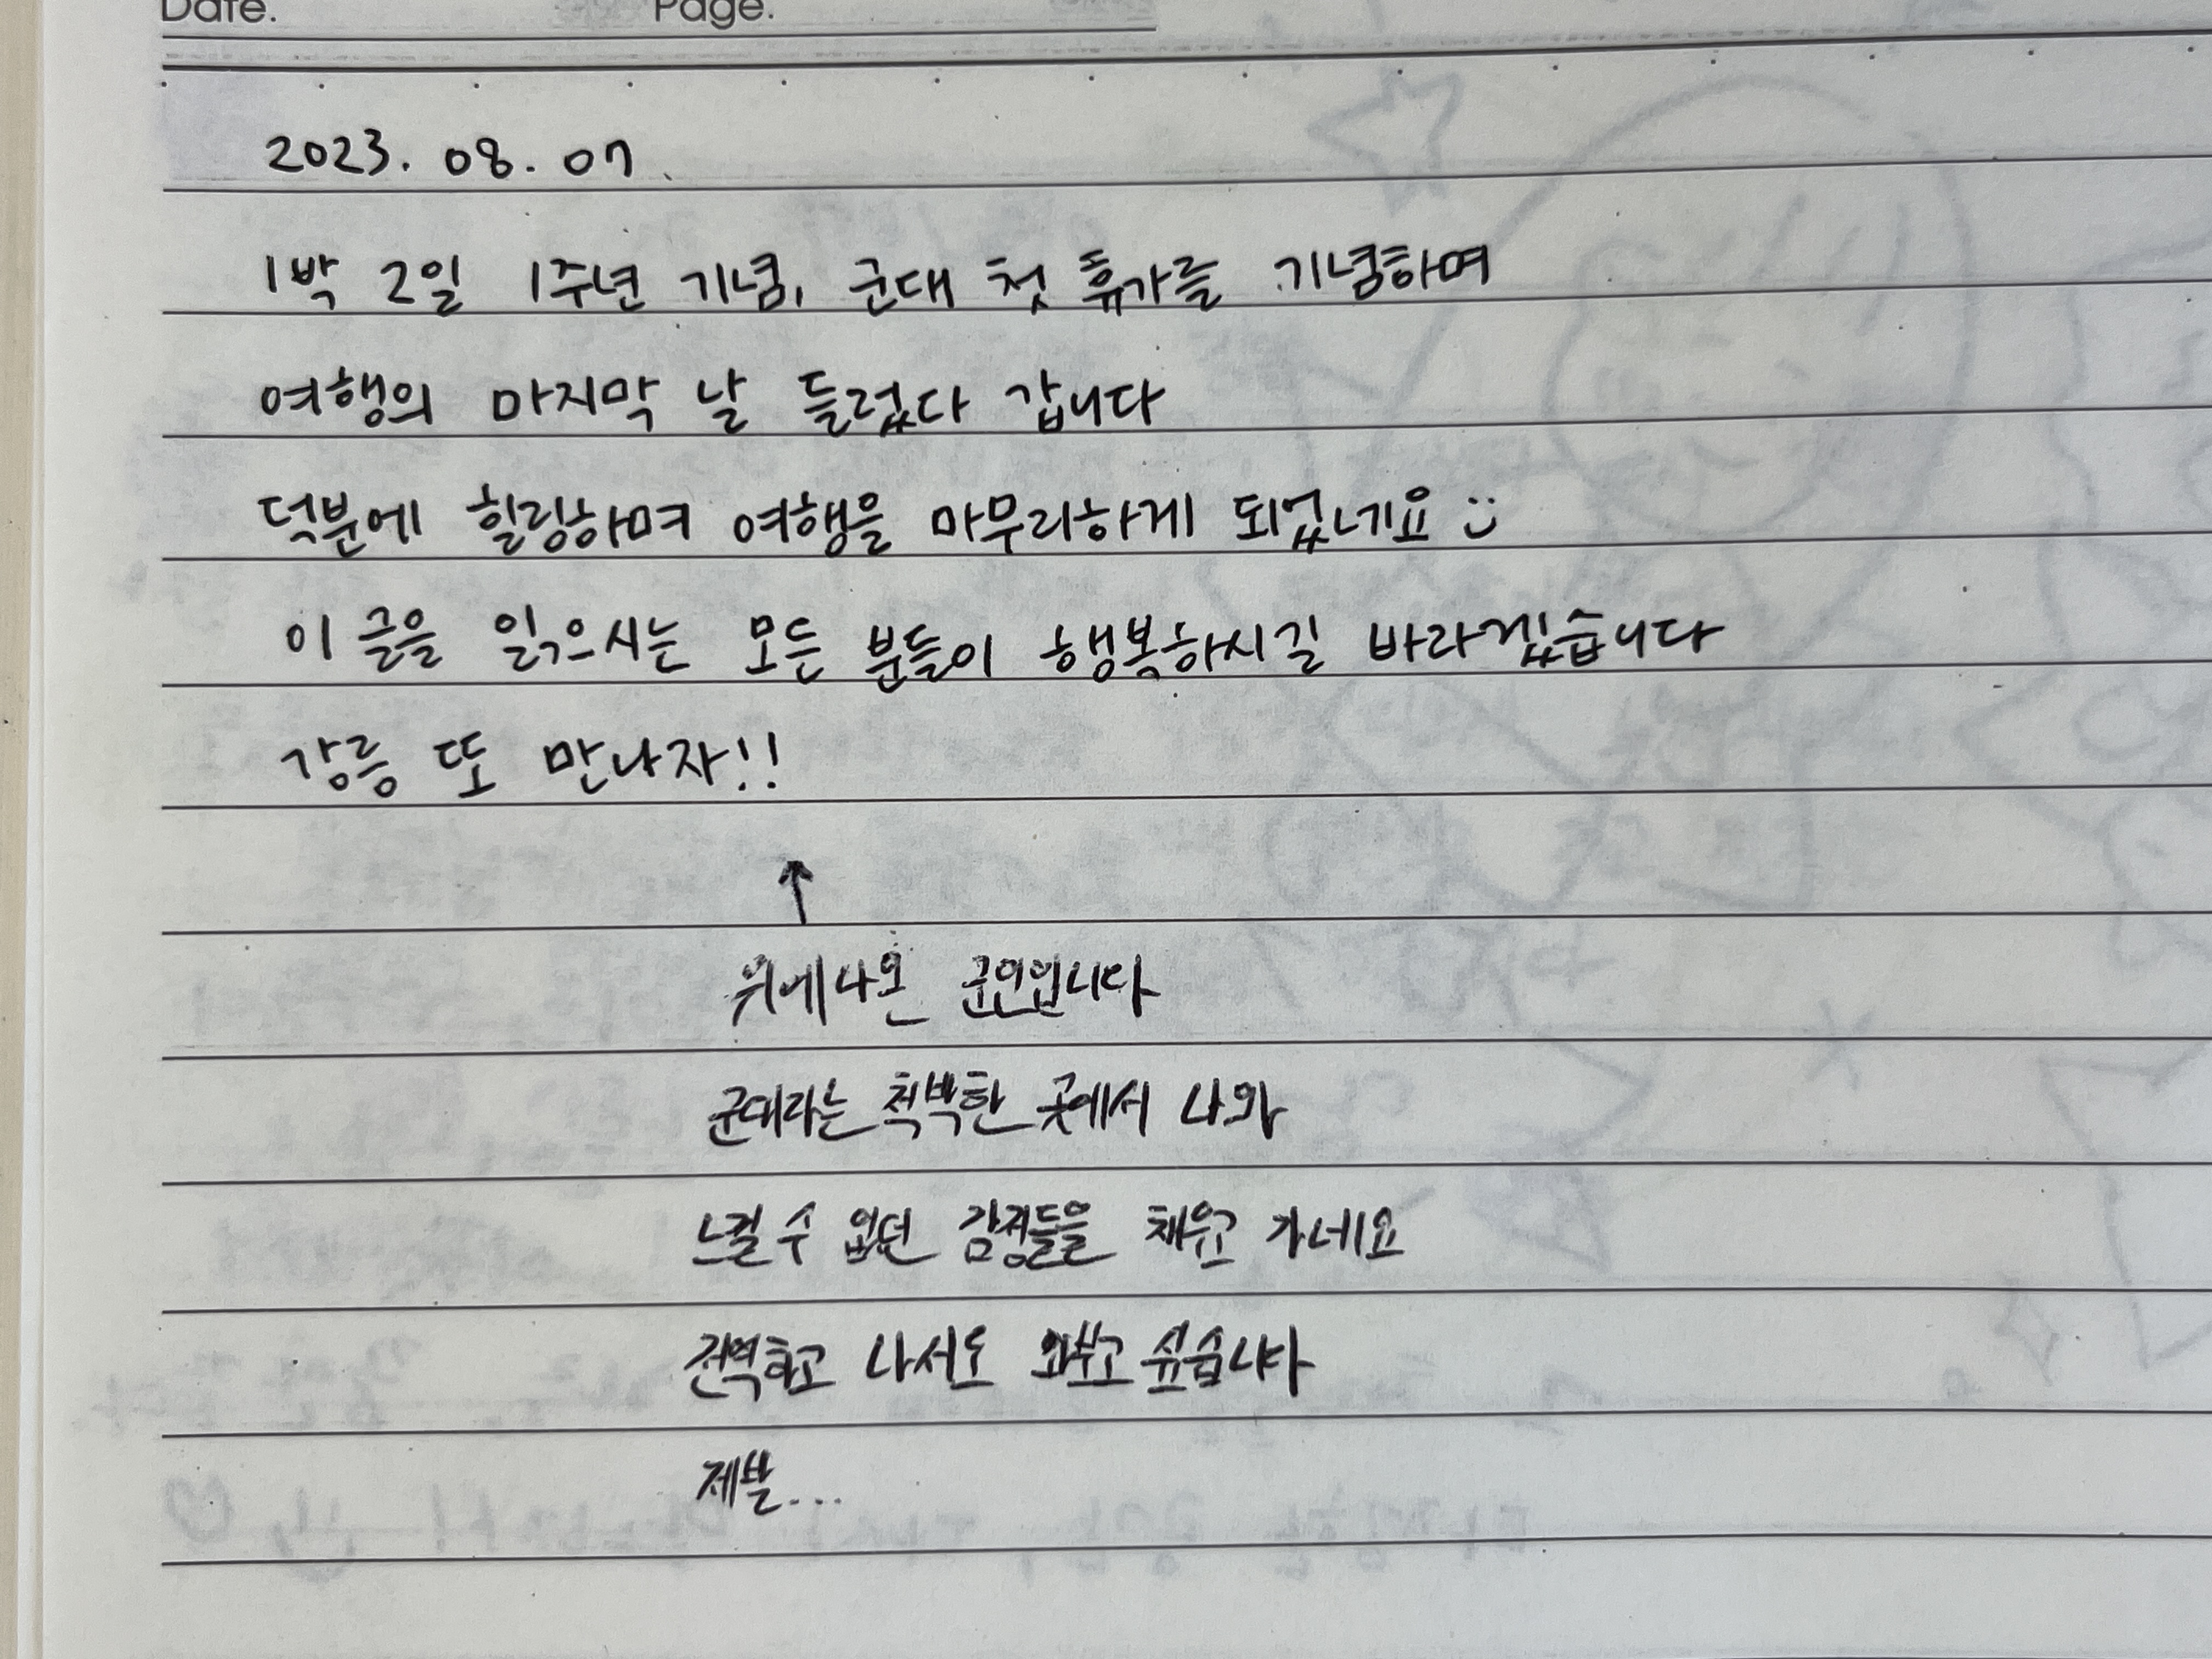 Date. Page.
2023. 08. 07.
1박 2일 1주년 기념, 군대 첫 휴가를 기념하여
여행의 마지막 날 들렀다 갑니다
덕분에 힐링하며 여행을 마무리하게 되었네요 :)
이 글을 읽으시는 모든 분들이 행복하시길 바라겠습니다
강릉 또 만나자!!
↑
위에 나온 군인입니다
군대라는 척박한 곳에서 나와
느낄 수 없던 감정들을 채우고 가네요
전역하고 나서도 와보고 싶습니다
제발...